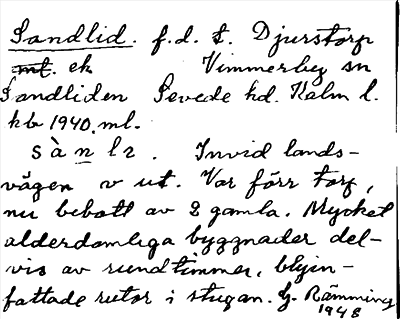 Sandlid. f.d. t. Djurstorp
mt. ek Vimmerby sn
Sandliden Sevede hd. Kalm l.
kb 1940. ml.
sànlı. Invid lands-
vägen v ut. Var förr torp,
nu bebott av 2 gamla. Mycket
alderdomliga byggnader del-
vis av rundtimmer, blyin-
fattade rutor i stugan. G. Rämming
1948